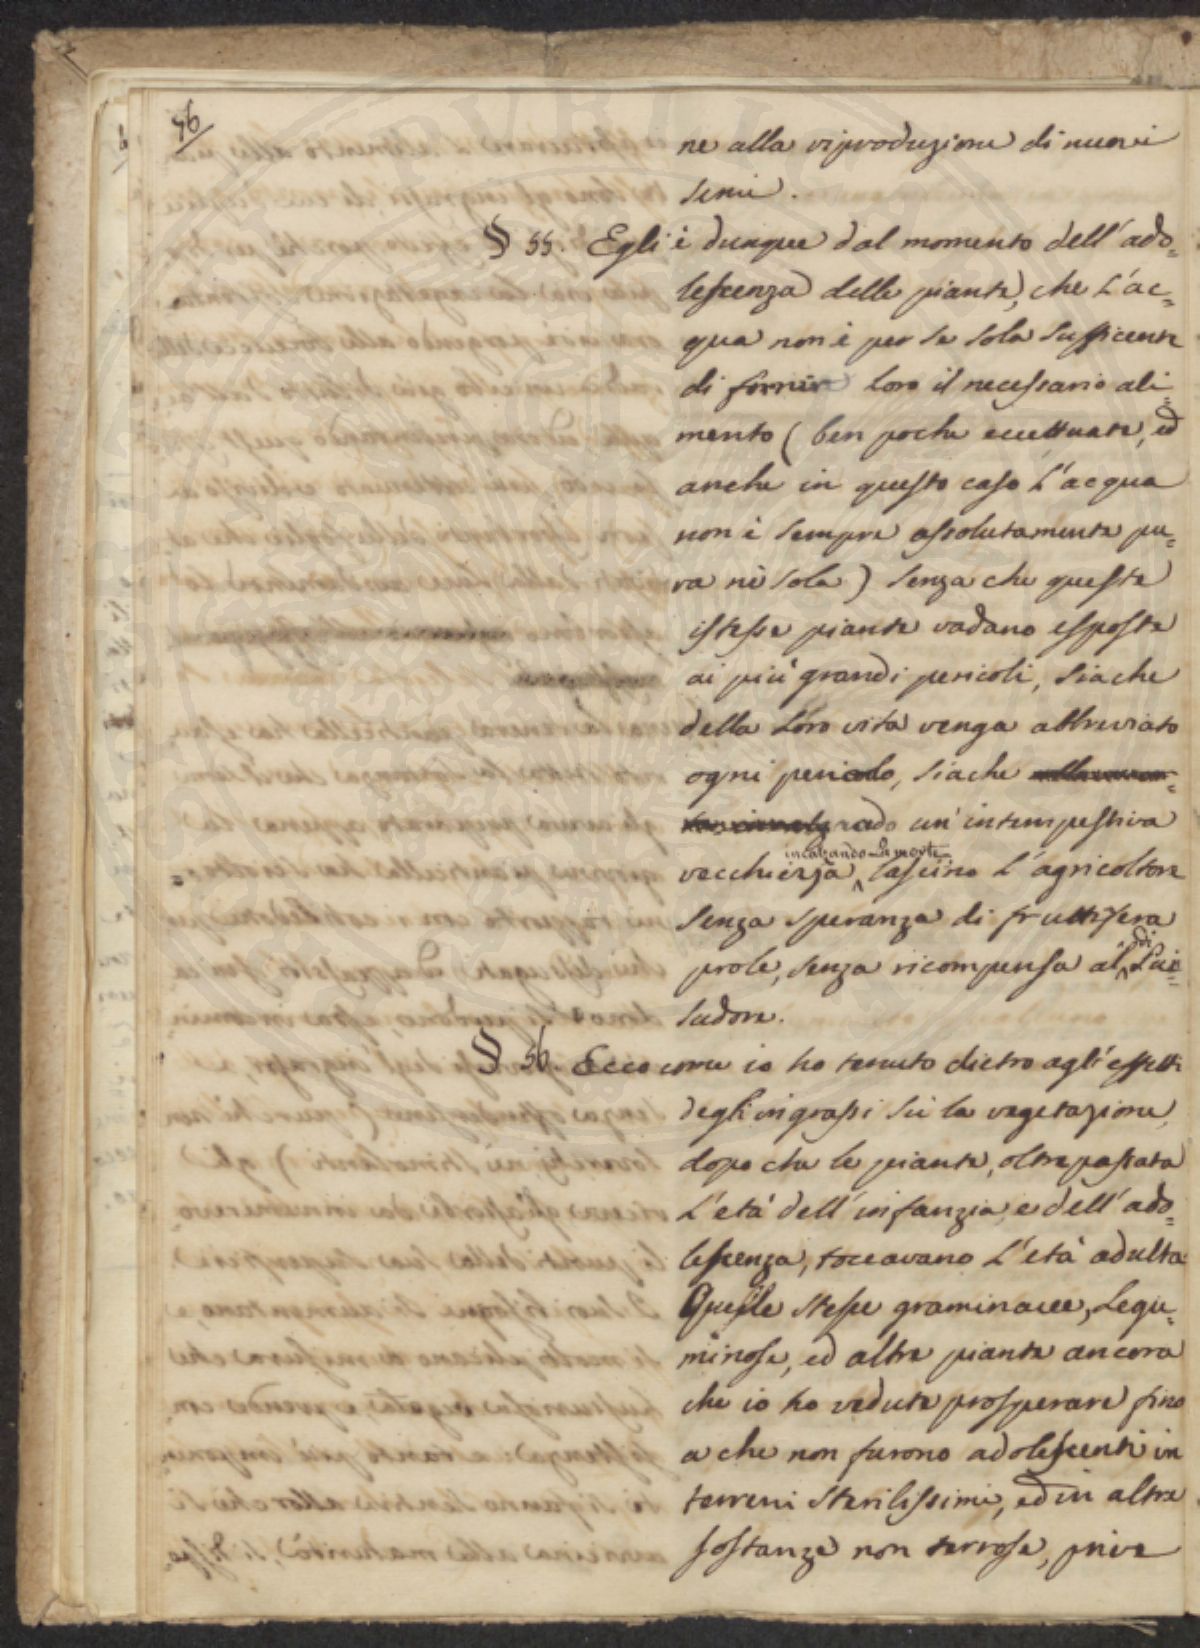 56
ne alla riproduzione di nuovi
semi.
§ 55. Egli è dunque dal momento dell'ado=
lescenza delle piante, che l'ac=
qua non è per se sola sufficente
di fornir loro il necessario ali=
mento (ben poche eccettuate, ed
anche in questo caso l'acqua
non è sempre assolutamente pu=
ra nè sola) senza che queste
istesse piante vadano esposte
ai più grandi pericoli, siache
della loro vita venga abbreviato
ogni periodo, siache
un'intempestiva
incalzando la morte
vecchiezza, lascino l'agricoltore
senza speranza di fruttifera
prole, senza ricompensa al di lui
sudore.
§ 56. Ecco come io ho tenuto dietro agl'effetti
degli ingrassi su la vegetazione,
dopo che le piante, oltrepassata
l'età dell'infanzia, e dell'ado=
lescenza, toccavano l'età adulta.
Quelle stesse graminacee, legu=
minose, ed altre piante ancora
che io ho vedute prosperare fino
a che non furono adolescenti in
terreni sterilissimi, ed in altre
sostanze non terrose, prive